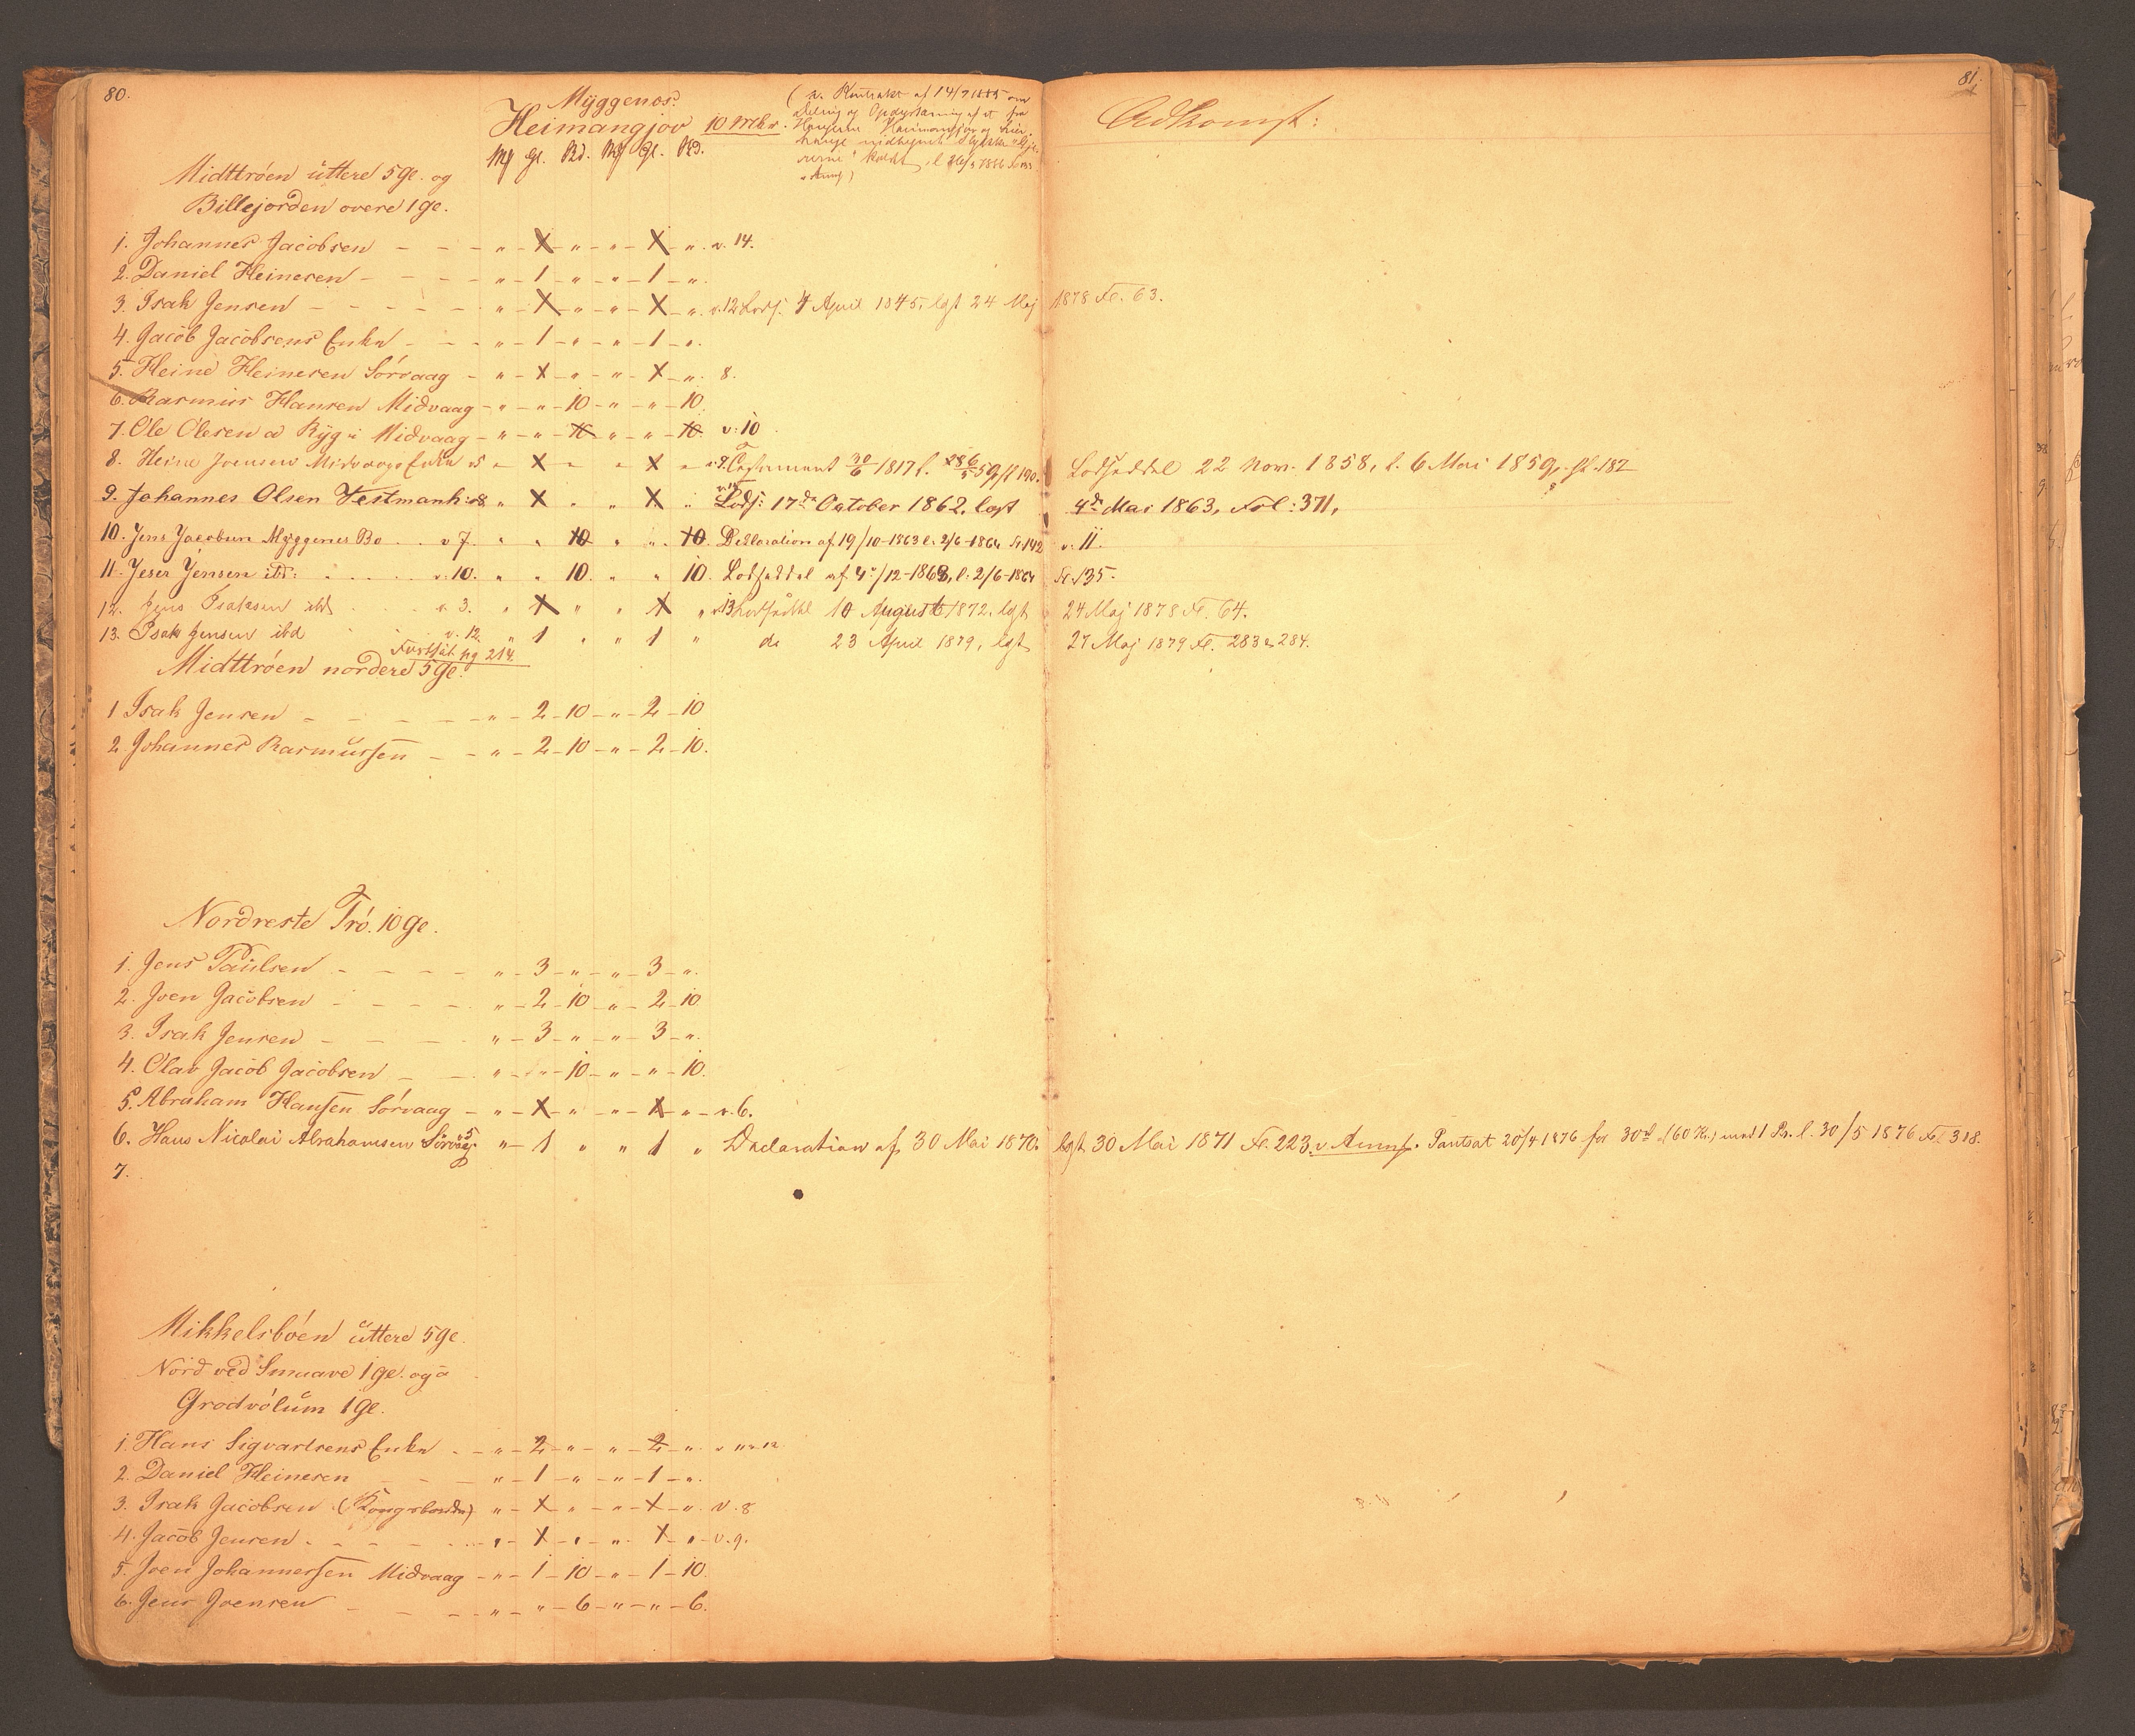 80.
Myggenæs.
Heimangjov 10 Mk.
(v. Kontrakt af 14/7 1885 om
Deling og Opdyrkning af et fra
Haugerne Heimangjov og
hauge indhegnet Stykke
kaldt l. 1886
v Annf)
Mk Gl. Sk. Mk Gl. Sk.
Midttróen üttere 5 ge. og
Billejorden overe 1 ge.
1. Johannes Jacobsen – – – " – X – " – " – X – " . v. 14.
2. Daniel Heinesen – – – " – 1 – " – " – 1 – " .
3. Isak Jensen – – – – " – X – " – " – X – " . v. 12 Lods. 4 April 1845, lgst 24 Maj 1878 Fl. 63.
4. Jacob Jacobsens Enke – – – " – 1 – " – " – 1 – " .
5. Heine Heinesen Sórvaag – " – X – " – " – X – " . 8.
6. Rasmus Hansen Midvaag – " – " – 10 – " – " – 10.
7. Ole Olesen a Ryg i Midvaag – " – " – 10 – " – " – 10. v. 10
8. Heine Joensens Midvaags Enke v5 " X " " X " v. 9. Testament 30/6 1817 l. 59 Fl 190. Lodseddel 22 Nov. 1858, l. 6 Mai 1859, fl. 182
9. Johannes Olsen Vestmanh: v8 " X " " X " Lods: 17de October 1862, lgst 4de Mai 1863, Fol: 371,
10. Jens Jacobsen Myggenes Bo . . v 7. " " 10 " " 10. Declaration af 19/10–1863 l. 2/6–1864 Fl 142 v. 11.
11. Jeser Jensen ibd: . . . . . v. 10. " " 10. " " 10. Lodseddel af 4/12–1863, l. 2/6–1864 Fl. 135.
12. Jens Isaksen ibd . . . v 3. " X " " X " v. 13 Lodseddel 10 August 1872, lgst 24 Maj 1878 Fl. 64.
13. Isak Jensen ibd . . . v. 12. " 1 " " 1 " do 23 April 1879, lgst 27 Maj 1879 Fl. 283 & 284.
Fortsat pg 214.
Midttróen nordere 5 ge.
1 Isak Jensen – – – – " – 2 – 10 – " – 2 – 10
2 Johannes Rasmussen – – " – 2 – 10 – " – 2 – 10.
Nordreste Tró. 10 ge.
1. Jens Paulsen – – – – " – 3 – " – " – 3 – " .
2. Joen Jacobsen – – – – " – 2 – 10 – " – 2 – 10.
3. Isak Jensen – – – – " – 3 – " – " – 3 – " .
4. Olav Jacob Jacobsen – – " – " – 10 – " – " – 10.
5. Abraham Hansen Sórvaag – " – X – " – " – X – " – v. 6.
6. Hans Nicolai Abrahamsen Sórvaag v5 " – 1 " " 1 " Declaration af 30 Mai 1870. lgst 30 Mai 1871 Fl. 223. v Annf. Pantsat 20/4 1876 for 30 (60 Kr.) med 1 Pr. l. 30/5 1876 Fl 318.
7.
Mikkelsbóen üttere 5 ge.
Nord ved Smuave 1 ge. og a
Grodvólum 1 ge.
1. Hans Sigvartsens Enke . – " – 2 – " – " – 2 – " . v 11 v 12
2. Daniel Heinesen – – – " – 1 – " – " – 1 – " .
3. Isak Jacobsen (Kongsbonde) " – X – " – " – X – " . v. 8
4. Jacob Jensen . – – – – " – X – " – " – X – " – v. 9.
5. Joen Johannessen Midvaag – " – 1 – 10 – " – 1 – 10.
6. Jens Joensen – – – " – " – 6 – " – " – 6.
81.
Adkomst: